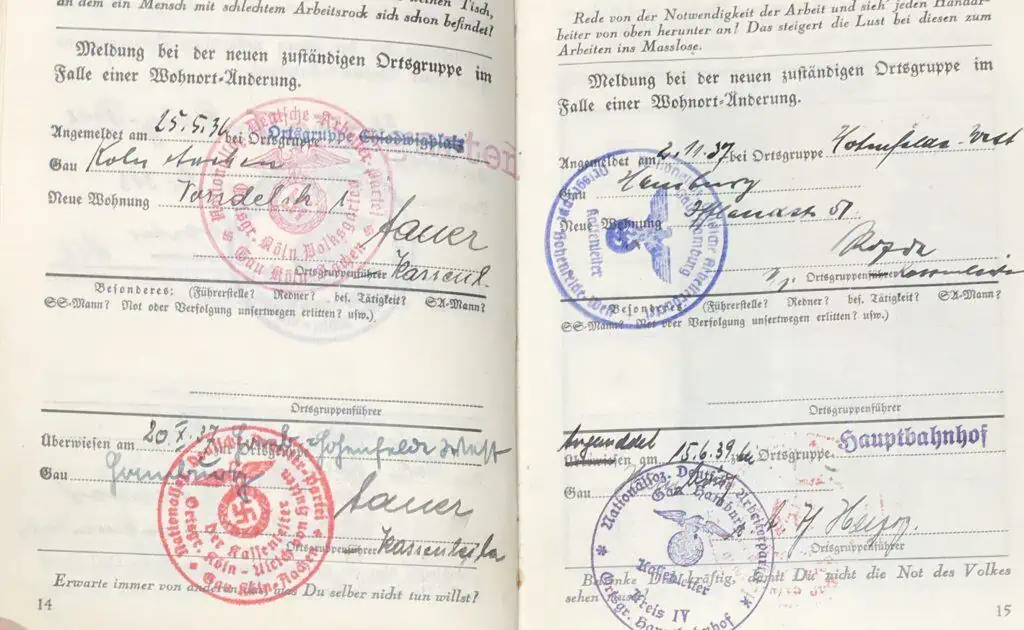 an dem ein Mensch mit schlechtem Arbeitsrock sich schon befindet?
Meldung bei der neuen zuständigen Ortsgruppe im
Falle einer Wohnort-Änderung.
Angemeldet am 25.5.36 bei Ortsgruppe Chlodwigplatz
Gau Köln Aachen
Neue Wohnung Vondelstr 1
Sauer
Ortsgruppenführer Kassenl.
Besonderes: (Führerstelle? Redner? bes. Tätigkeit? SA-Mann?
SS-Mann? Not oder Verfolgung unsertwegen erlitten? usw.)
Ortsgruppenführer
Überwiesen am 20.X.37 Ortsgruppe Hohenfelde West
Gau Hamburg
Sauer
Ortsgruppenführer Kassenleiter
Erwarte immer von anderen Du selber nicht tun willst?
14
Nationalsoz. Deutsche Arbeiter-Partei
Der Kassenleiter
Ortsgr. Köln-Ulrich von Hutten
Gau Köln-Aachen
Rede von der Notwendigkeit der Arbeit und sieh' jeden Handar-
beiter von oben herunter an? Das steigert die Lust bei diesen zum
Arbeiten ins Masslose.
Meldung bei der neuen zuständigen Ortsgruppe im
Falle einer Wohnort-Änderung.
Angemeldet am 2.11.37 bei Ortsgruppe Hohenfelde-West
Gau Hamburg
Neue Wohnung Ifflandstr 51
Ortsgruppenführer Kassenleiter
Besonderes: (Führerstelle? Redner? bes. Tätigkeit? SA-Mann?
SS-Mann? Not oder Verfolgung unsertwegen erlitten? usw.)
Ortsgruppenführer
Angemeldet
Überwiesen am 15.6.39 Ortsgruppe Hauptbahnhof
Gau
Ortsgruppenführer
Nationalsoz. Deutsche Arbeiterpartei
Gau Hamburg
Kassenleiter
Kreis IV
Ortsgr. Hauptbahnhof
Du nicht die Not des Volkes
sehen
15